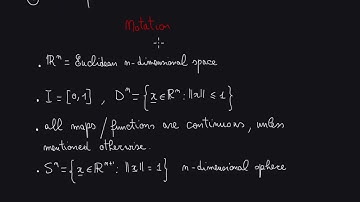 Notation
• ℝⁿ = Euclidean n-dimensional space
• I = [0,1] , Dⁿ = {x ∈ ℝⁿ : ||x|| ≤ 1}
• all maps/functions are continuous, unless
mentioned otherwise.
• Sⁿ = {x ∈ ℝⁿ⁺¹ : ||x|| = 1} n-dimensional sphere